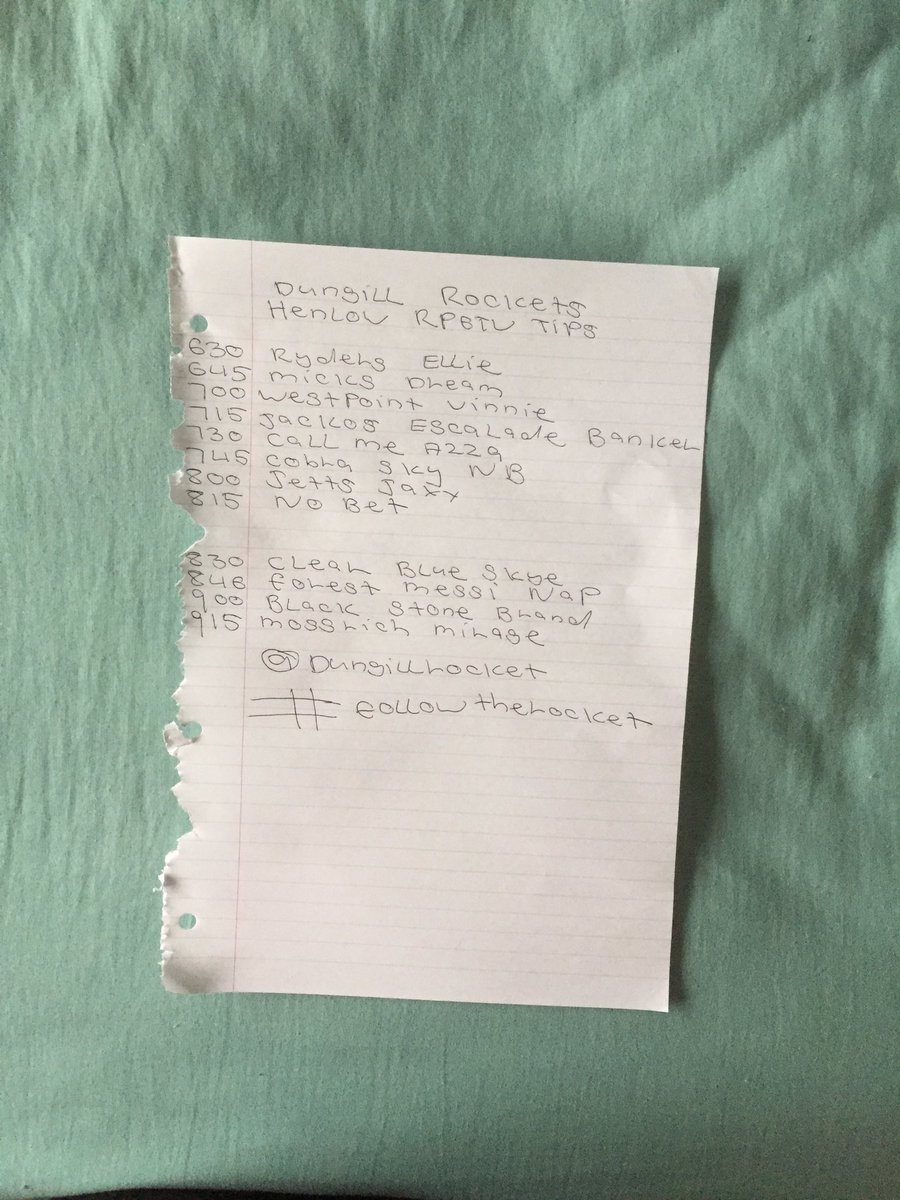 Dungill Rockets
Henlow RPGTV Tips
630 Ryders Ellie
645 micks Dream
700 westpoint vinnie
715 Jackos Escalade Banker
730 Call me Azza
745 Cobra Sky NB
800 Jetts Jaxx
815 No Bet
830 Clear Blue Skye
846 forest messi Nap
900 Black Stone Brand
915 mossrich mirage
@Dungillrocket
#followtherocket